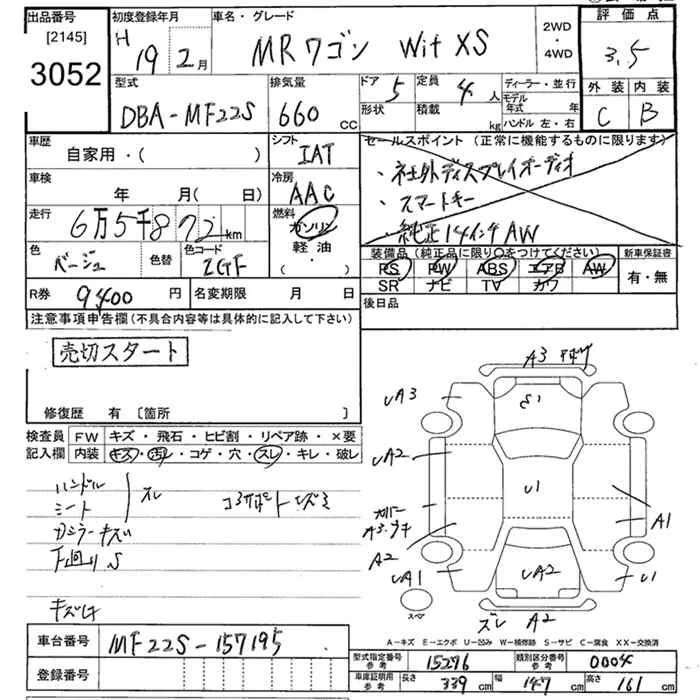 出品番号
[2145]
3052
初度登録年月
H 19 2月
車名・グレード
MRワゴン Wit XS
2WD
・
4WD
評価点
3.5
外装 内装
C B
型式
DBA-MF22S
排気量
660 CC
ドア 5
形状
定員 4 人
積載 kg
ディーラー・並行
モデル年式 年
ハンドル 左・右
車歴
自家用・( )
シフト
IAT
車検
年 月( 日)
冷房
AAC
走行
6万5千872km
燃料
ガソリン
軽油
・
色
ベージュ
色替
色コード
ZGF
R券
9400円
名変期限 月 日
セールスポイント(正常に機能するものに限ります)
・社外ディスプレイオーディオ
・スマートキー
・純正14インチAW
装備品(純正品に限り○をつけてください)
PS PW ABS エアB AW
SR ナビ TV カワ
新車保証書
有・無
後日品
注意事項申告欄(不具合内容等は具体的に記入して下さい)
売切スタート
修復歴 有 [箇所 ]
検査員記入欄
FW キズ・飛石・ヒビ割・リペア跡・×要
内装 キズ・汚レ・コゲ・穴・スレ・キレ・破レ
ハンドル
シート
スレ
コアサポートユズミ
カラーキズ
下回りS
A3
UA3
UA2
A3
A2
UA1
E1
U1
UA2
A1
U1
スペア
ズレ A2
A-キズ E-エクボ U-凹み W-補修跡 S-サビ C-腐食 XX-交換済
車台番号
MF22S-157195
登録番号
型式指定番号 参考
15276
類別区分番号 参考
0004
車庫証明用 参考
長さ 339 cm
幅 147 cm
高さ 161 cm